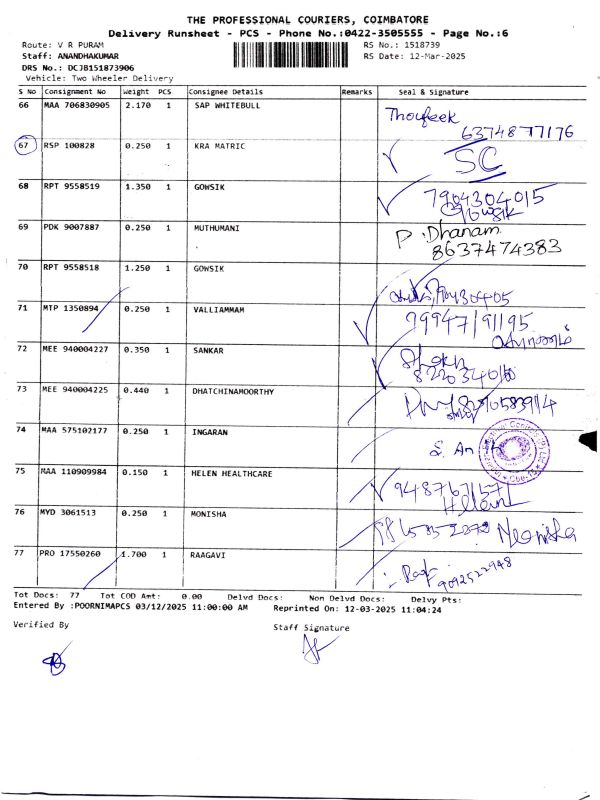 THE PROFESSIONAL COURIERS, COIMBATORE
Delivery Runsheet - PCS - Phone No.:0422-3505555 - Page No.:6
Route: V R PURAM
RS No.: 1518739
Staff: ANANDHAKUMAR
RS Date: 12-Mar-2025
DRS No.: DCJB151873906
Vehicle: Two Wheeler Delivery
S No Consignment No Weight PCS Consignee Details Remarks Seal & Signature
66 MAA 706830905 2.170 1 SAP WHITEBULL
Thoufeek
6374877176
67 RSP 100828 0.250 1 KRA MATRIC
SC
68 RPT 9558519 1.350 1 GOWSIK
7904304015
Gowsik
69 PDK 9007887 0.250 1 MUTHUMANI
P. Dhanam
8637474383
70 RPT 9558518 1.250 1 GOWSIK
71 MTP 1350894 0.250 1 VALLIAMMAM
72 MEE 940004227 0.350 1 SANKAR
73 MEE 940004225 0.440 1 DHATCHINAMOORTHY
74 MAA 575102177 0.250 1 INGARAN
75 MAA 110909984 0.150 1 HELEN HEALTHCARE
76 MYD 3061513 0.250 1 MONISHA
77 PRO 17550260 1.700 1 RAAGAVI
9092522948
Tot Docs: 77 Tot COD Amt: 0.00 Delvd Docs: Non Delvd Docs: Delvy Pts:
Entered By :POORNIMAPCS 03/12/2025 11:00:00 AM Reprinted On: 12-03-2025 11:04:24
Verified By
Staff Signature